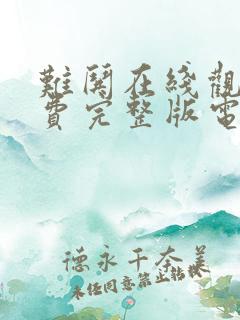 難関在綫觀
費完整版電
德永千奈美
未经同意禁止转载